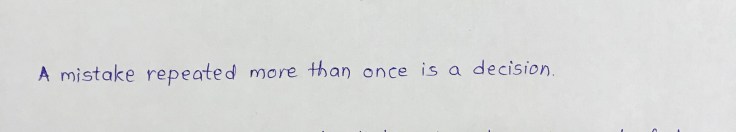 A mistake repeated more than once is a decision.